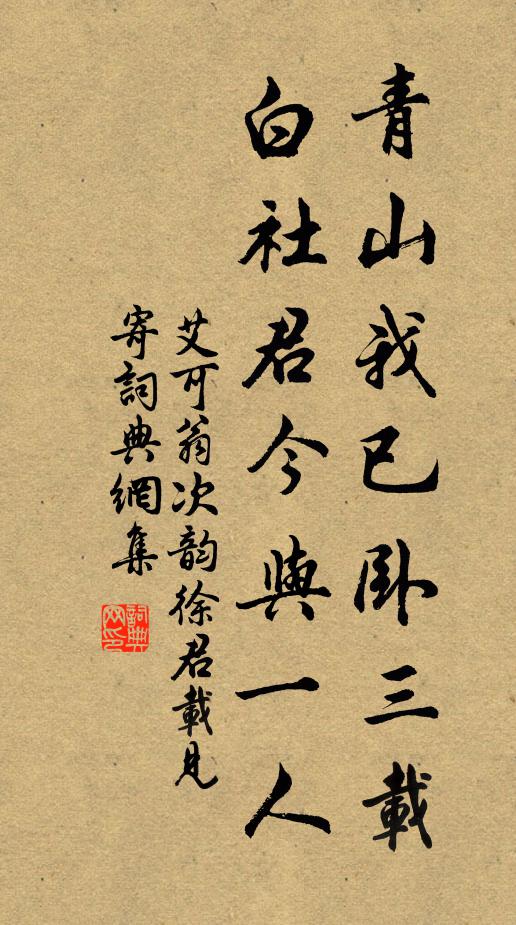 青山我已卧三載
白社君今與一人
艾可翁次韵徐君載見
寄詞典網集
詞典
网印